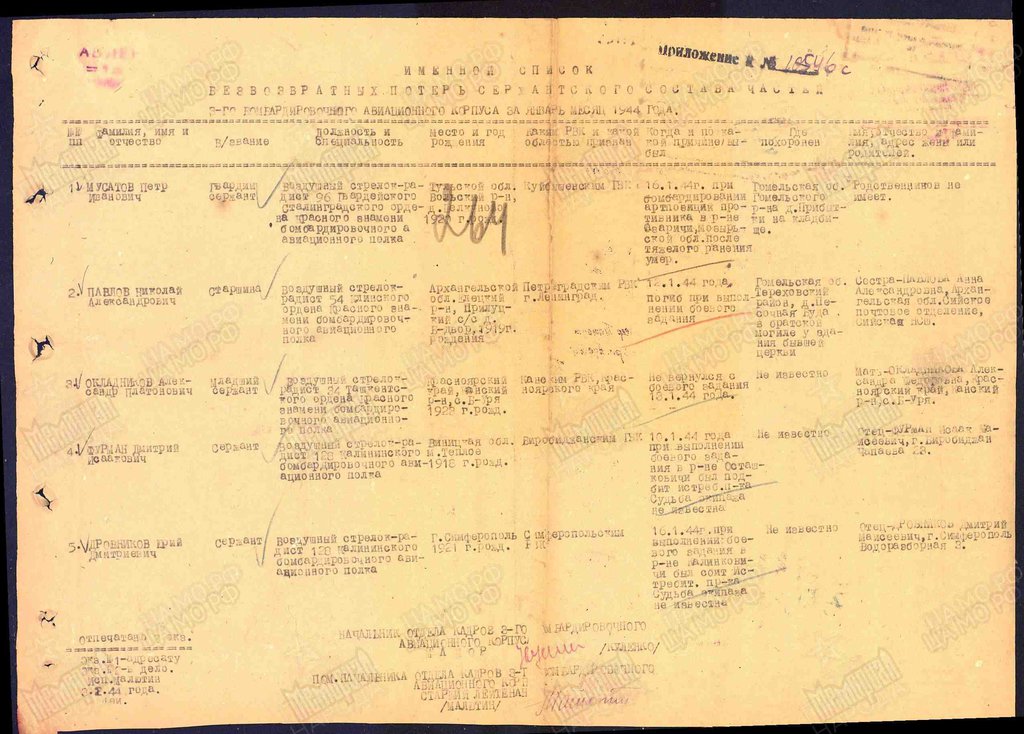 Приложение к № 18546с
ИМЕННОЙ СПИСОК
БЕЗВОЗВРАТНЫХ ПОТЕРЬ СЕРЖАНТСКОГО СОСТАВА ЧАСТЕЙ
3-го БОМБАРДИРОВОЧНОГО АВИАЦИОННОГО КОРПУСА ЗА ЯНВАРЬ МЕСЯЦ 1944 ГОДА.
№№ пп
Фамилия, имя и отчество
В/звание
Должность и специальность
Место и год рождения
Каким РВК и какой областью призван
Когда и по какой причине/вы-был
Где похоронен
Имя, отчество и фами-
лия, адрес жены или
родителей.
1. МУСАТОВ Петр
Иванович
Гвардии
сержант
Воздушный стрелок-ра-
дист 96 Гвардейского
Сталинградского орде-
на Красного знамени
бомбардировочного а
авиационного полка
Тульской обл.
264
Куйбышевским ГВК
16.1.44г. при
бомбардировании
артпозиции про-
тивника в р-не
Озаричи, Мозырь-
ской обл. После
тяжелого ранения
умер.
Гомельская об.
Гомельского
р-на д.Прибыт-
ки на кладби-
ще.
Родственников не
имеет.
2. ПАВЛОВ Николай
Александрович
Старшина
Воздушный стрелок-
радист 54 Клинского
ордена Красного зна-
мени бомбардировоч-
ного авиационного
полка
Архангельской
обл.Елецкий
р-н, Прилуц-
кий с/с
Б-Двор,1919г.
рождения
Петреградским РВК
г.Ленинград.
12.1.44 года,
погиб при выпол-
нении боевого
задания
Гомельская об.
Тереховский
район, д.Пе-
сочная Буда
в братской
могиле у зда-
ния бывшей
церкви
Сестра-ПАВЛОВА Анна
Александровна, Архан-
гельская обл.Сийское
почтовое отделение,
3. ОКЛАДНИКОВ Алек-
сандр Платонович
Младший
сержант
Воздушный стрелок-
радист 24 Ташкентс-
кого ордена Красного
знамени бомбардиро-
вочного авиационно-
го полка
Красноярский
край, Канский
р-н,с.Б-Уря
1922 г.рожд.
Канским РВК,Крас-
ноярского края
Не вернулся с
боевого задания
13.1.44 года.
Не известно
Мать-ОКЛАДНИКОВА Алек-
сандра Федоровна,Крас-
ноярский край,Канский
р-н,с.Б-Уря.
4. ФУРМАН Дмитрий
Исаакович
Сержант
Воздушный стрелок-ра-
дист 128 Калининского
бомбардировочного ави-
ационного полка
Виницкая обл.
м.Теплое
1918 г.рожд.
Биробиджанским ГВК
10.1.44 года
при выполнении
боевого зада-
ния в р-не Осташ-
ковичи был под-
бит истреб.п-ка
Судьба экипажа
не известна
Не известно
Отец-ФУРМАН Исаак Мо-
исеевич,г.Биробиджан
Чапаева 23.
5. ДРОВНИКОВ Юрий
Дмитриевич
Сержант
Воздушный стрелок-ра-
дист 128 Калининского
бомбардировочного ави-
ационного полка
г.Симферополь
1921 г.рожд.
Симферопольским
РВК
16.1.44г.при
выполнении бое-
вого задания в
р-не Калинкови-
чи был сбит ис-
требит. пр-ка
Судьба экипажа
не известна
Не известно
Отец-ДРОВНИКОВ Дмитрий
Моисеевич,г.Симферополь
Водоразборная 3.
Отпечатано экз.
Экз.№1-адресату
Экз.№2-в дело.
исп.Малютин
НАЧАЛЬНИК ОТДЕЛА КАДРОВ 3-ГО БОМБАРДИРОВОЧНОГО
АВИАЦИОННОГО КОРПУСА
МАЙОР
/КУЦЕНКО/
ПОМ.НАЧАЛЬНИКА ОТДЕЛА КАДРОВ 3-Г БОМБАРДИРОВОЧНОГО
АВИАЦИОННОГО КОРП
СТАРШИЙ ЛЕЙТЕНАН
/МАЛЮТИН/